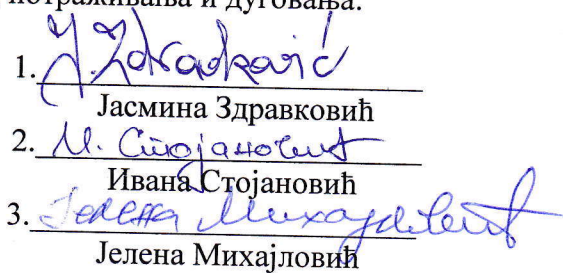 потраживања и дуговања.
1. J. Zdravković
Јасмина Здравковић
2. И. Стојановић
Ивана Стојановић
3. Јелена Михајловић
Јелена Михајловић